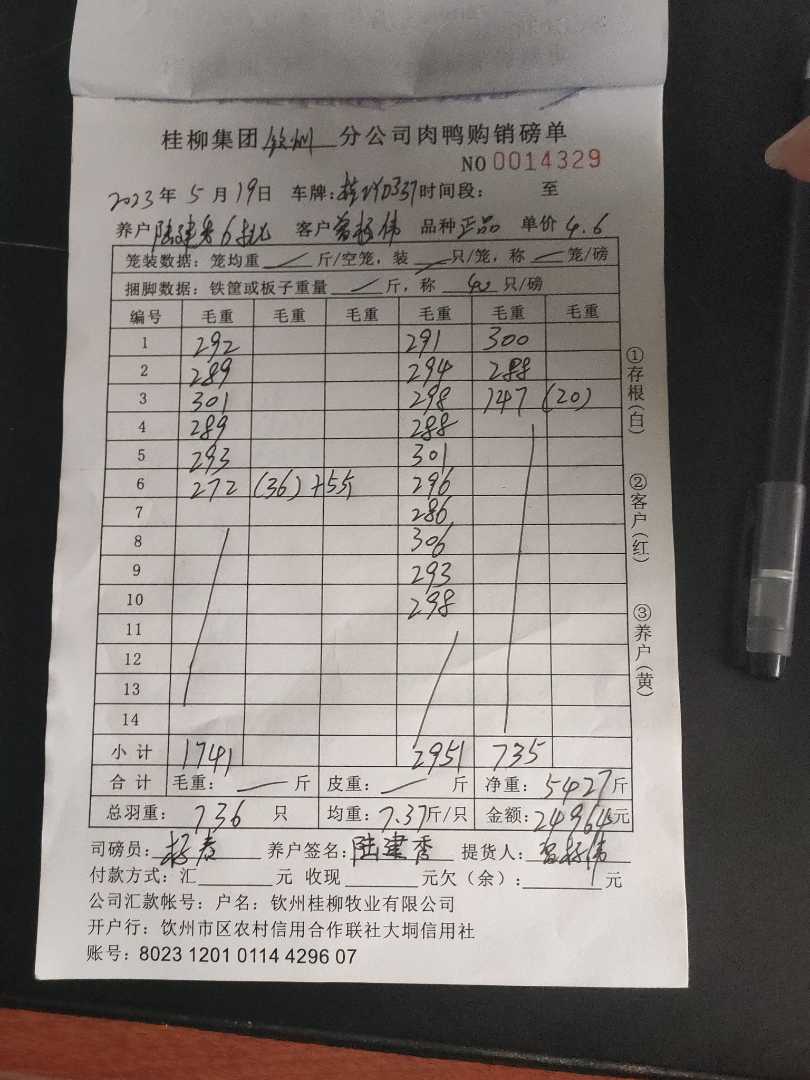 桂柳集团 钦州 分公司肉鸭购销磅单
NO 0014329
2023年 5月 19日 车牌: 时间段: 至
养户 陆建秀6批 客户 曾杨伟 品种 正品 单价 4.6
笼装数据: 笼均重 / 斤/空笼, 装 / 只/笼, 称 / 笼/磅
捆脚数据: 铁筐或板子重量 / 斤, 称 40 只/磅
编号 毛重 毛重 毛重 毛重 毛重 毛重
1 292 291 300
2 289 294 288
3 301 298 147 (20)
4 289 288
5 293 301
6 272 (36) +5斤 296
7 286
8 306
9 293
10 298
11
12
13
14
小计 1741 2951 735
合计 毛重: / 斤 皮重: / 斤 净重: 5427斤
总羽重: 736 只 均重: 7.37斤/只 金额: 24964元
司磅员: 养户签名: 陆建秀 提货人: 曾杨伟
付款方式: 汇 元 收现 元欠(余): 元
公司汇款帐号: 户名: 钦州桂柳牧业有限公司
开户行: 饮州市区农村信用合作联社大垌信用社
账号: 8023 1201 0114 4296 07
①存根(白)
②客户(红)
③养户(黄)